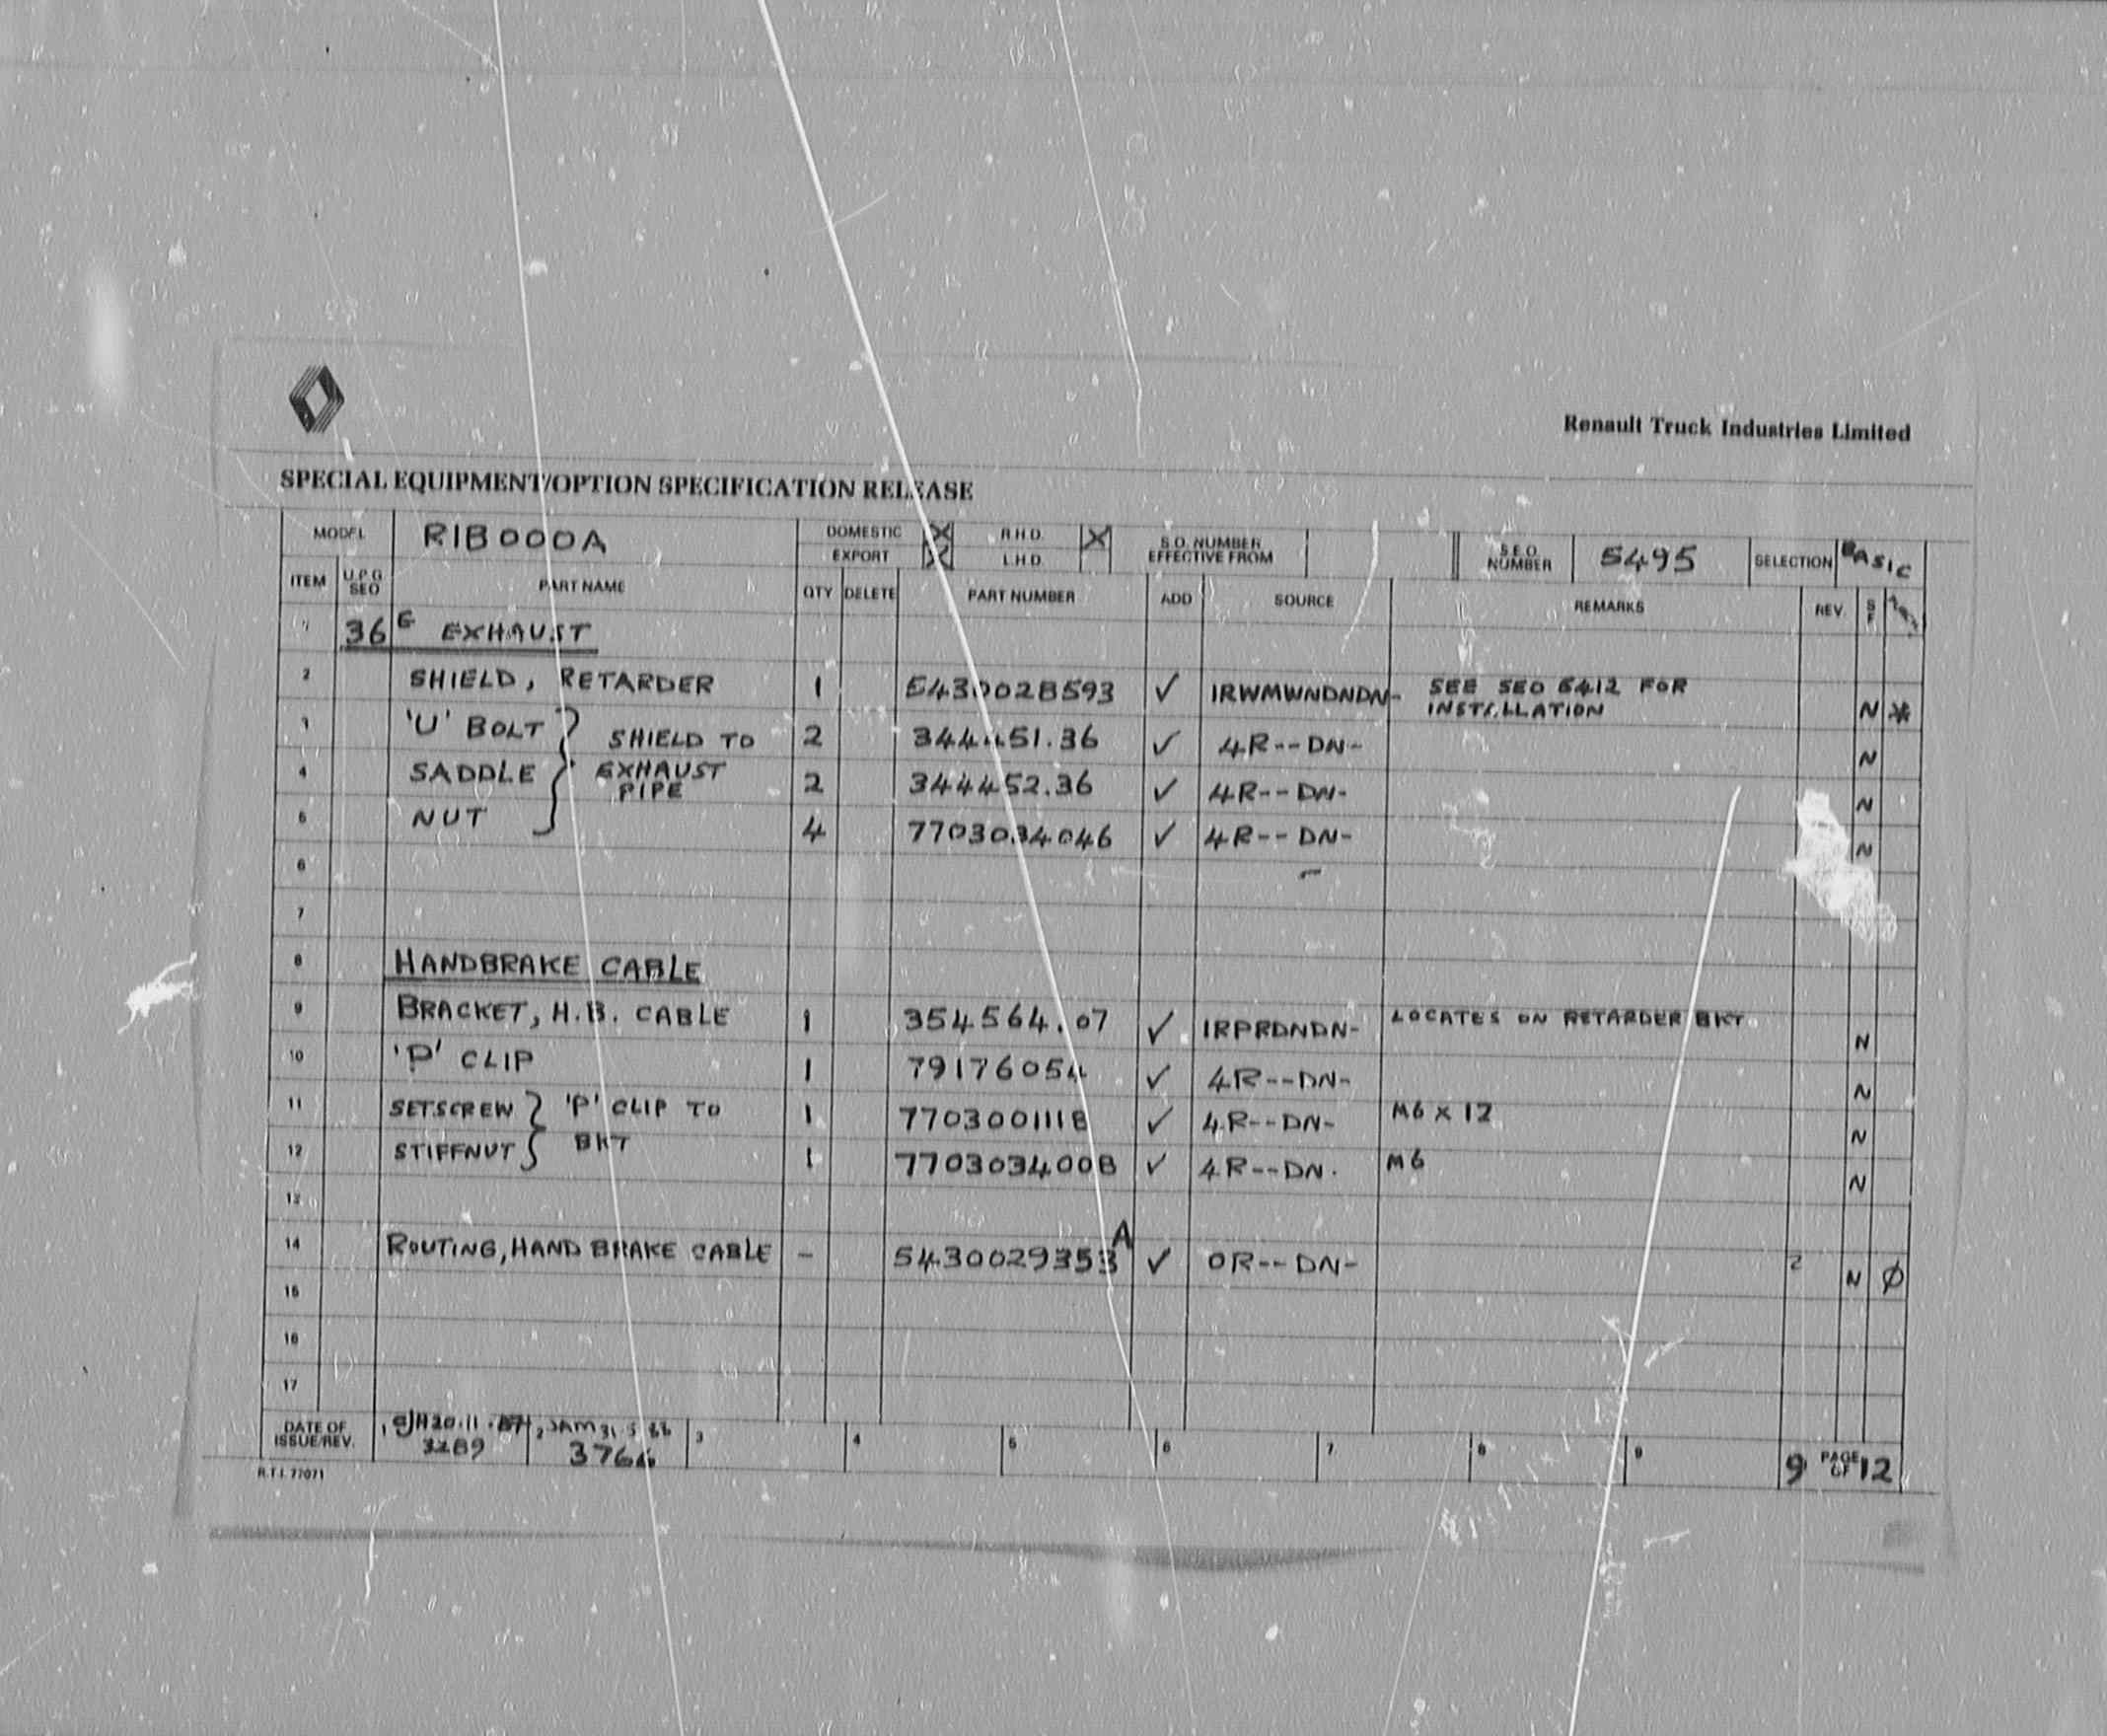 Renault Truck Industries Limited
SPECIAL EQUIPMENT/OPTION SPECIFICATION RELEASE
MODEL R1B000A DOMESTIC X R.H.D. X S.O. NUMBER EFFECTIVE FROM S.E.O. NUMBER 5495 SELECTION BASIC
EXPORT X L.H.D.
ITEM U.P.G SEO PART NAME QTY DELETE PART NUMBER ADD SOURCE REMARKS REV. S F
1 36 G EXHAUST
2 SHIELD, RETARDER 1 5430028593 ✓ 1RWMWNDNDN- SEE SEO 5412 FOR INSTALLATION N *
3 'U' BOLT } SHIELD TO 2 344451.36 ✓ 4R--DN- N
4 SADDLE } EXHAUST PIPE 2 344452.36 ✓ 4R--DN- N
5 NUT } 4 7703034046 ✓ 4R--DN- N
6
7
8 HANDBRAKE CABLE
9 BRACKET, H.B. CABLE 1 354564.07 ✓ 1RPRDNDN- LOCATES ON RETARDER BKT. N
10 'P' CLIP 1 79176054 ✓ 4R--DN- N
11 SETSCREW } 'P' CLIP TO 1 7703001118 ✓ 4R--DN- M6 X 12 N
12 STIFFNUT } BKT 1 7703034008 ✓ 4R--DN. M6 N
13
14 ROUTING, HAND BRAKE CABLE - 5430029353 A ✓ 0R--DN- 2 N Ø
15
16
17
DATE OF ISSUE/REV. 1 20.11.87 3289 2 3766 3 4 5 6 7 8 9 9 PAGE OF 12
R.T.I. 77071